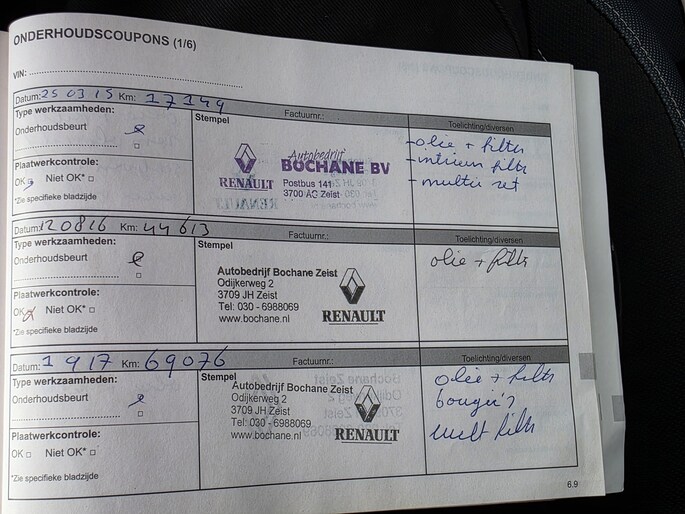 ONDERHOUDSCOUPONS (1/6)
VIN:
Datum: 25 03 15 Km: 17149
Type werkzaamheden:
Onderhoudsbeurt
Plaatwerkcontrole:
OK Niet OK*
*Zie specifieke bladzijde
Stempel Factuurnr.:
Autobedrijf
BOCHANE BV
RENAULT
Postbus 141
3700 AC Zeist
Toelichting/diversen
- olie + filter
- filter
- set
Datum: 120816 Km: 44613
Type werkzaamheden:
Onderhoudsbeurt
Plaatwerkcontrole:
OK Niet OK*
*Zie specifieke bladzijde
Stempel Factuurnr.:
Autobedrijf Bochane Zeist
Odijkerweg 2
3709 JH Zeist
Tel: 030 - 6988069
www.bochane.nl
RENAULT
Toelichting/diversen
olie + filter
Datum: 1 9 17 Km: 69076
Type werkzaamheden:
Onderhoudsbeurt
Plaatwerkcontrole:
OK Niet OK*
*Zie specifieke bladzijde
Stempel Factuurnr.:
Autobedrijf Bochane Zeist
Odijkerweg 2
3709 JH Zeist
Tel: 030 - 6988069
www.bochane.nl
RENAULT
Toelichting/diversen
olie + filter
bougie's
filter
6.9